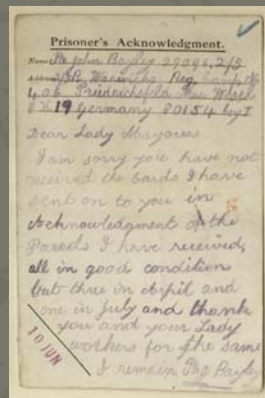 Prisoner's Acknowledgment.
Name Pte John Bayley 29096, 2/5
Address R. Warwicks Reg
406 Friedrichsfeld
Germany 80154
Dear Lady Mayoress
I am sorry you have not
received the Cards I have
sent on to you in
Acknowledgment of the
Parcels I have received,
all in good condition
but three in April and
one in July and thank
you and your Lady
workers for the same
I remain Pte Bayley
10 JUN